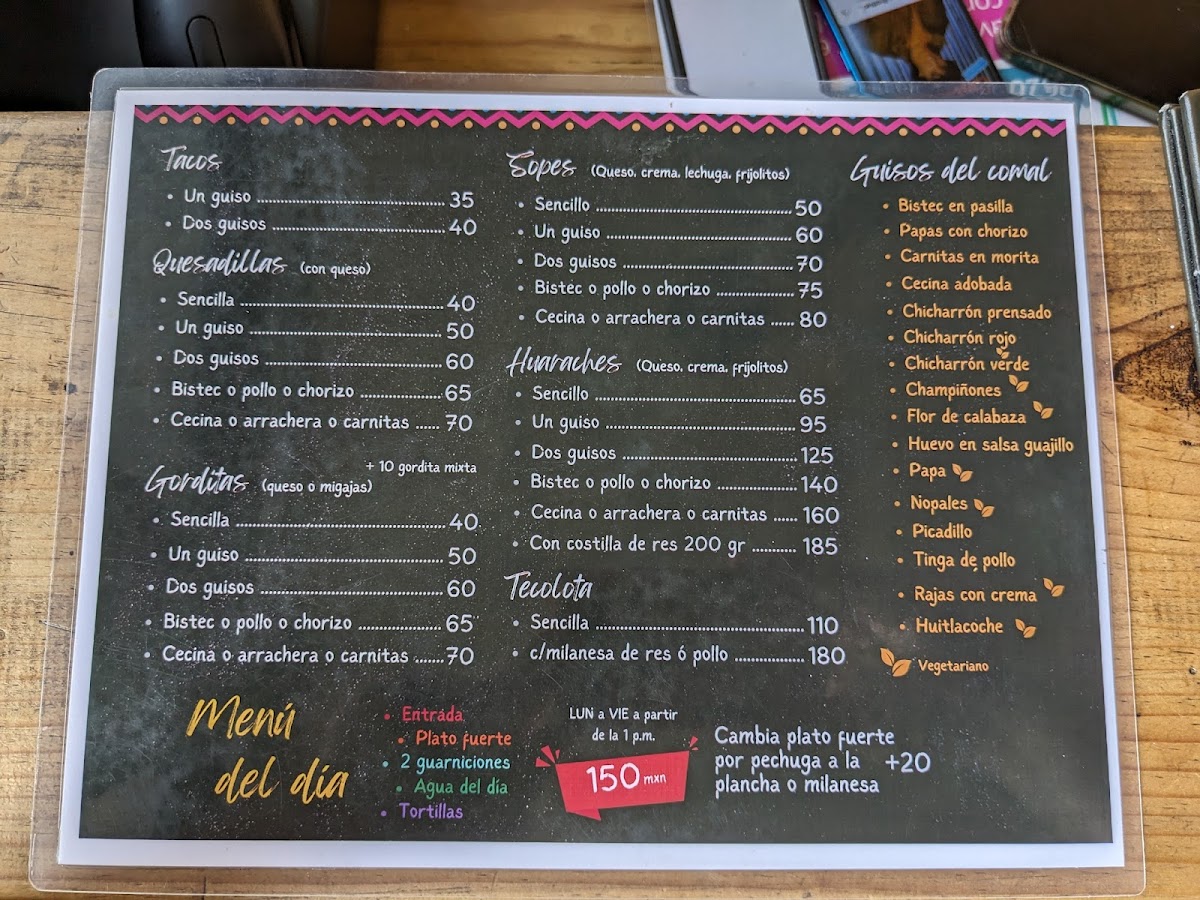 Tacos
Un guiso 35
Dos guisos 40
Quesadillas (con queso)
Sencilla 40
Un guiso 50
Dos guisos 60
Bistec o pollo o chorizo 65
Cecina o arrachera o carnitas 70
+ 10 gordita mixta
Gorditas (queso o migajas)
Sencilla 40
Un guiso 50
Dos guisos 60
Bistec o pollo o chorizo 65
Cecina o arrachera o carnitas 70
Sopes (Queso, crema, lechuga, frijolitos)
Sencillo 50
Un guiso 60
Dos guisos 70
Bistec o pollo o chorizo 75
Cecina o arrachera o carnitas 80
Huaraches (Queso, crema, frijolitos)
Sencillo 65
Un guiso 95
Dos guisos 125
Bistec o pollo o chorizo 140
Cecina o arrachera o carnitas 160
Con costilla de res 200 gr 185
Tecolota
Sencilla 110
c/milanesa de res ó pollo 180
Guisos del comal
Bistec en pasilla
Papas con chorizo
Carnitas en morita
Cecina adobada
Chicharrón prensado
Chicharrón rojo
Chicharrón verde
Champiñones
Flor de calabaza
Huevo en salsa guajillo
Papa
Nopales
Picadillo
Tinga de pollo
Rajas con crema
Huitlacoche
Vegetariano
Menú
del día
Entrada
Plato fuerte
2 guarniciones
Agua del día
Tortillas
LUN a VIE a partir
de la 1 p.m.
150 mxn
Cambia plato fuerte
por pechuga a la +20
plancha o milanesa